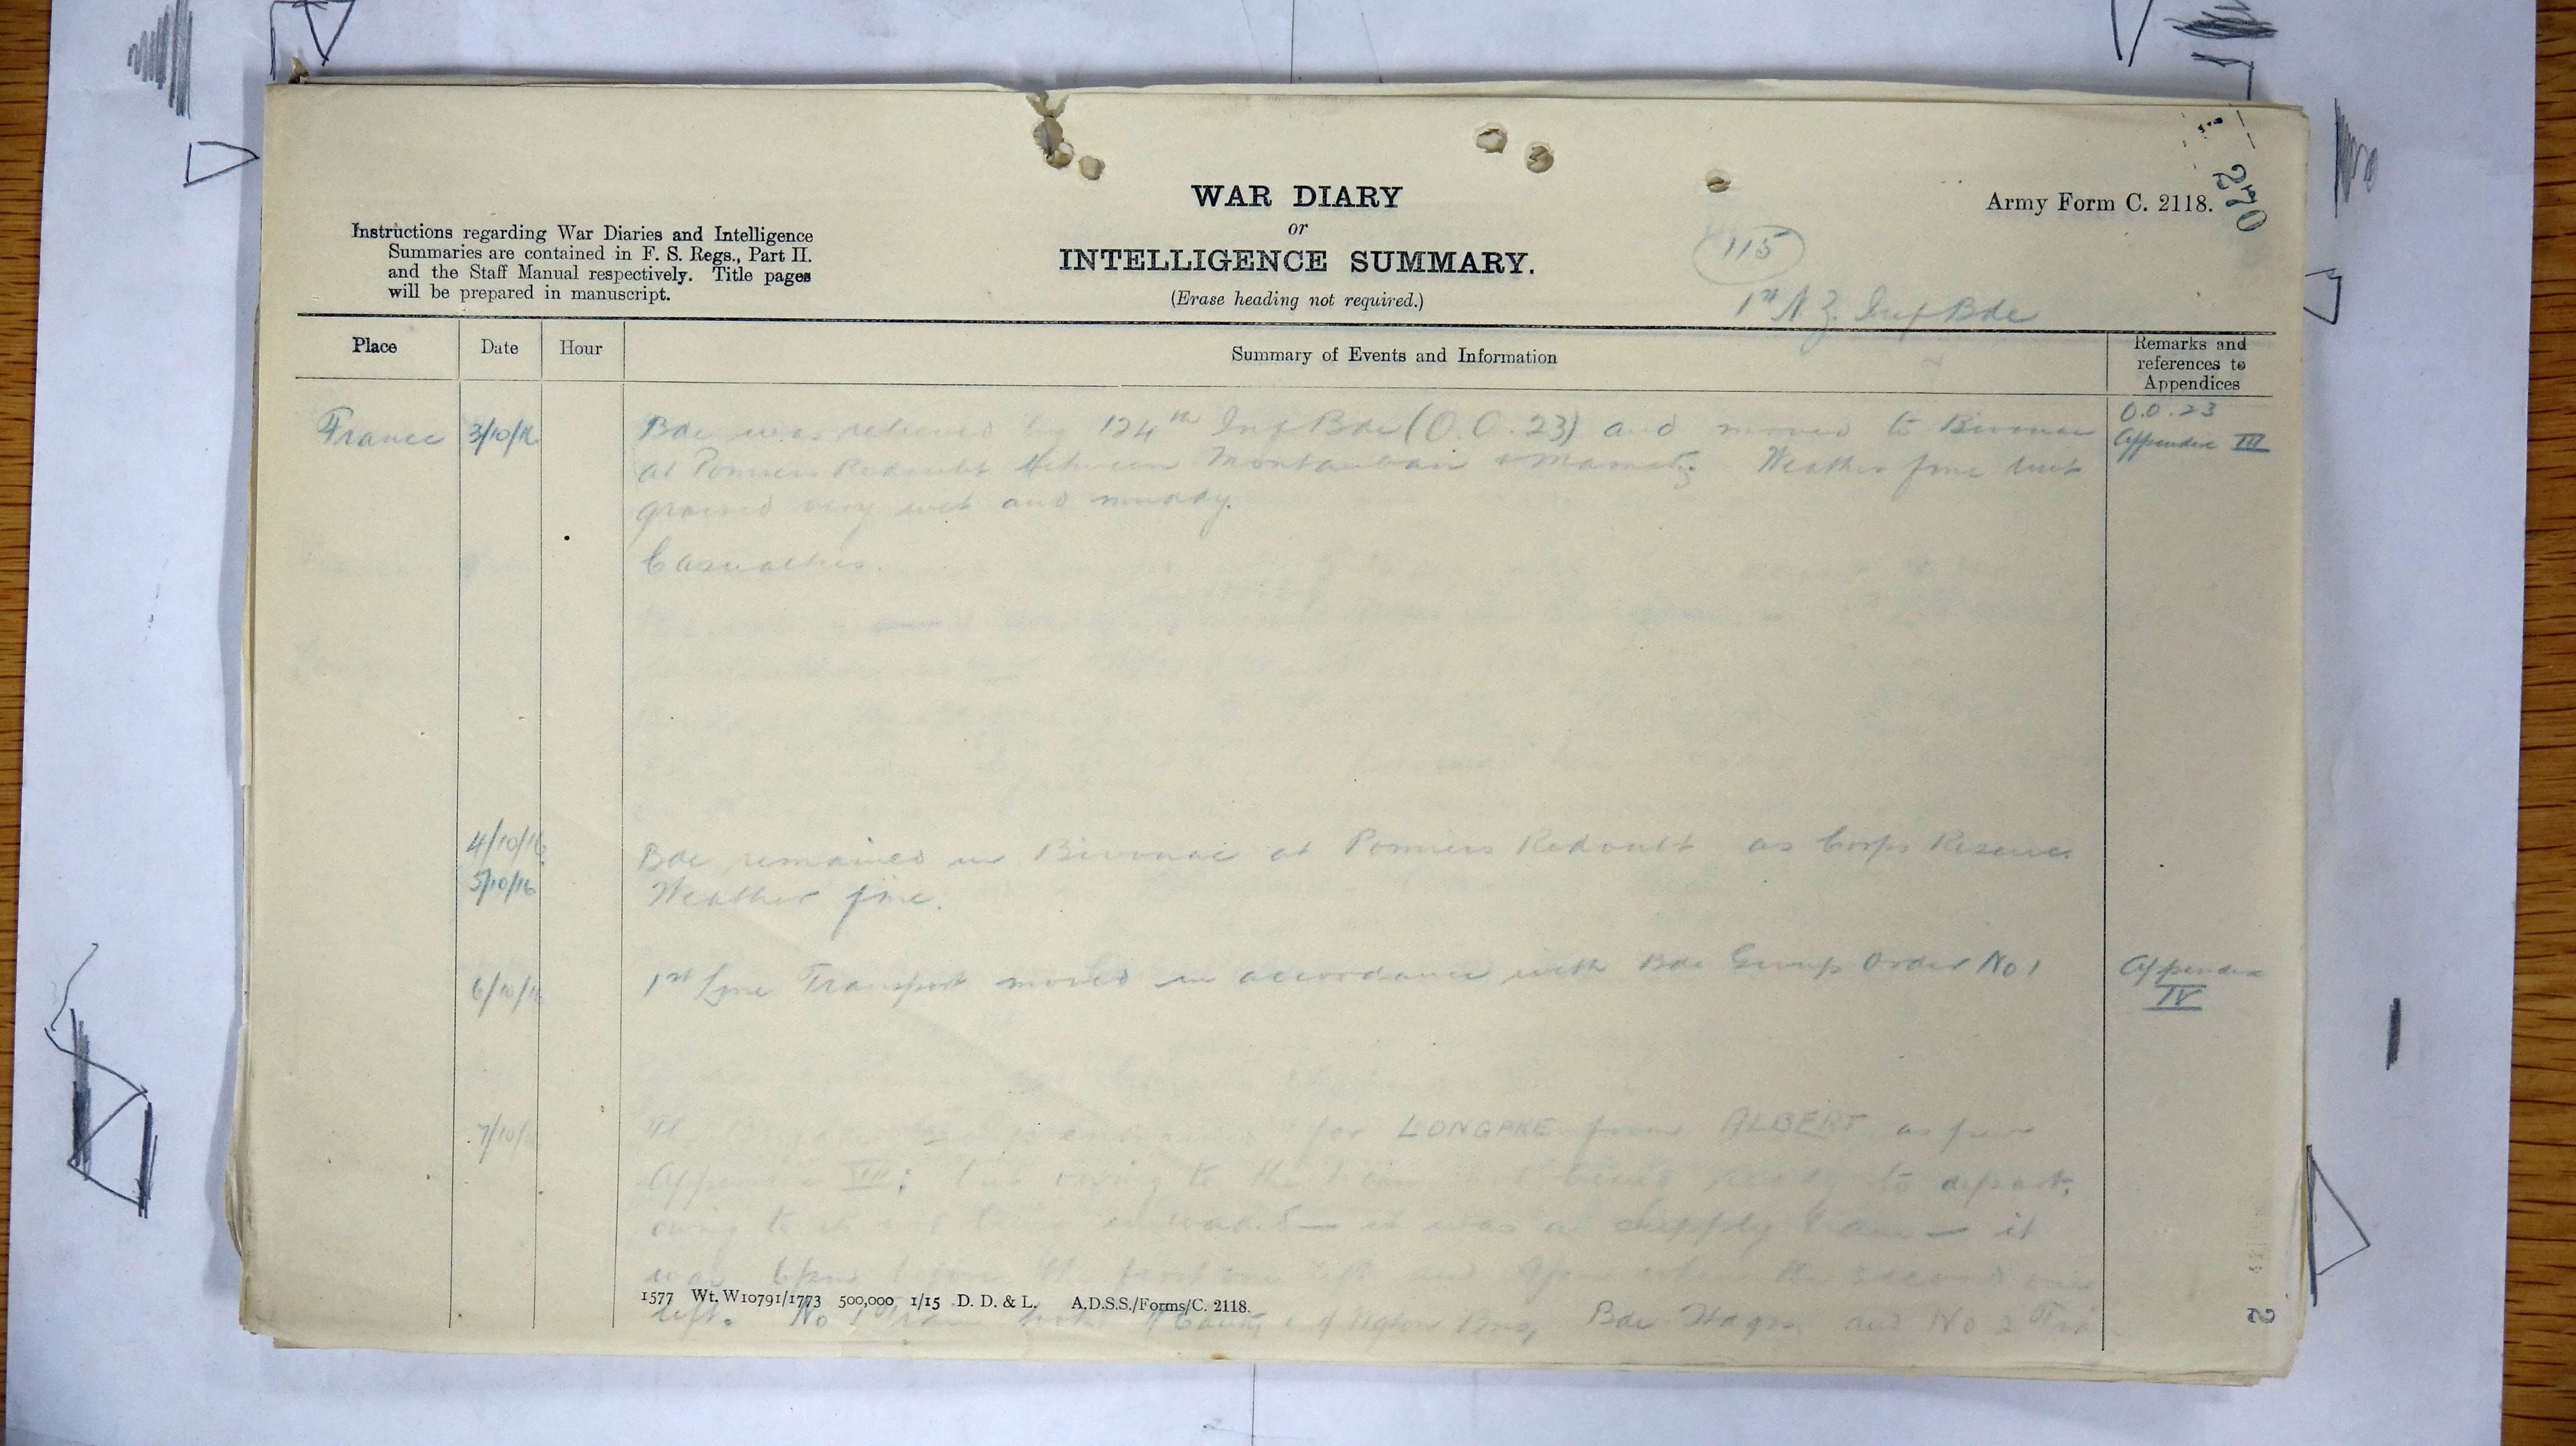 WAR DIARY
or
INTELLIGENCE SUMMARY.
(Erase heading not required.)
Instructions regarding War Diaries and Intelligence
Summaries are contained in F. S. Regs., Part II.
and the Staff Manual respectively. Title pages
will be prepared in manuscript.
Army Form C. 2118.
115
1st N Z. Inf Bde
Place Date Hour Summary of Events and Information Remarks and
references to
Appendices
France 3/10/16 Bde was relieved by 124th Inf Bde (O.O. 23) and moved to Bivouac O.O. 23
at Pomiers Redoubt between Montauban & Mametz. Weather fine but Appendix III
ground very wet and muddy.
Casualties.
4/10/16 Bde remained in Bivouac at Pomiers Redoubt as Corps Reserve
5/10/16 Weather fine.
6/10/16 1st Line Transport moved in accordance with Bde Group Order No 1 Appendix
IV
7/10/ for LONGPRE from ALBERT as per
Appendix VIII; but owing to the train not being ready to depart,
owing to it not being unloaded — it was a supply train — it
was 6pm before the first one left and when the second one
left. No 1 Train took Bde Hdqrs, and No 2
1577 Wt. W10791/1773 500,000 1/15 D. D. & L. A.D.S.S./Forms/C. 2118.
2